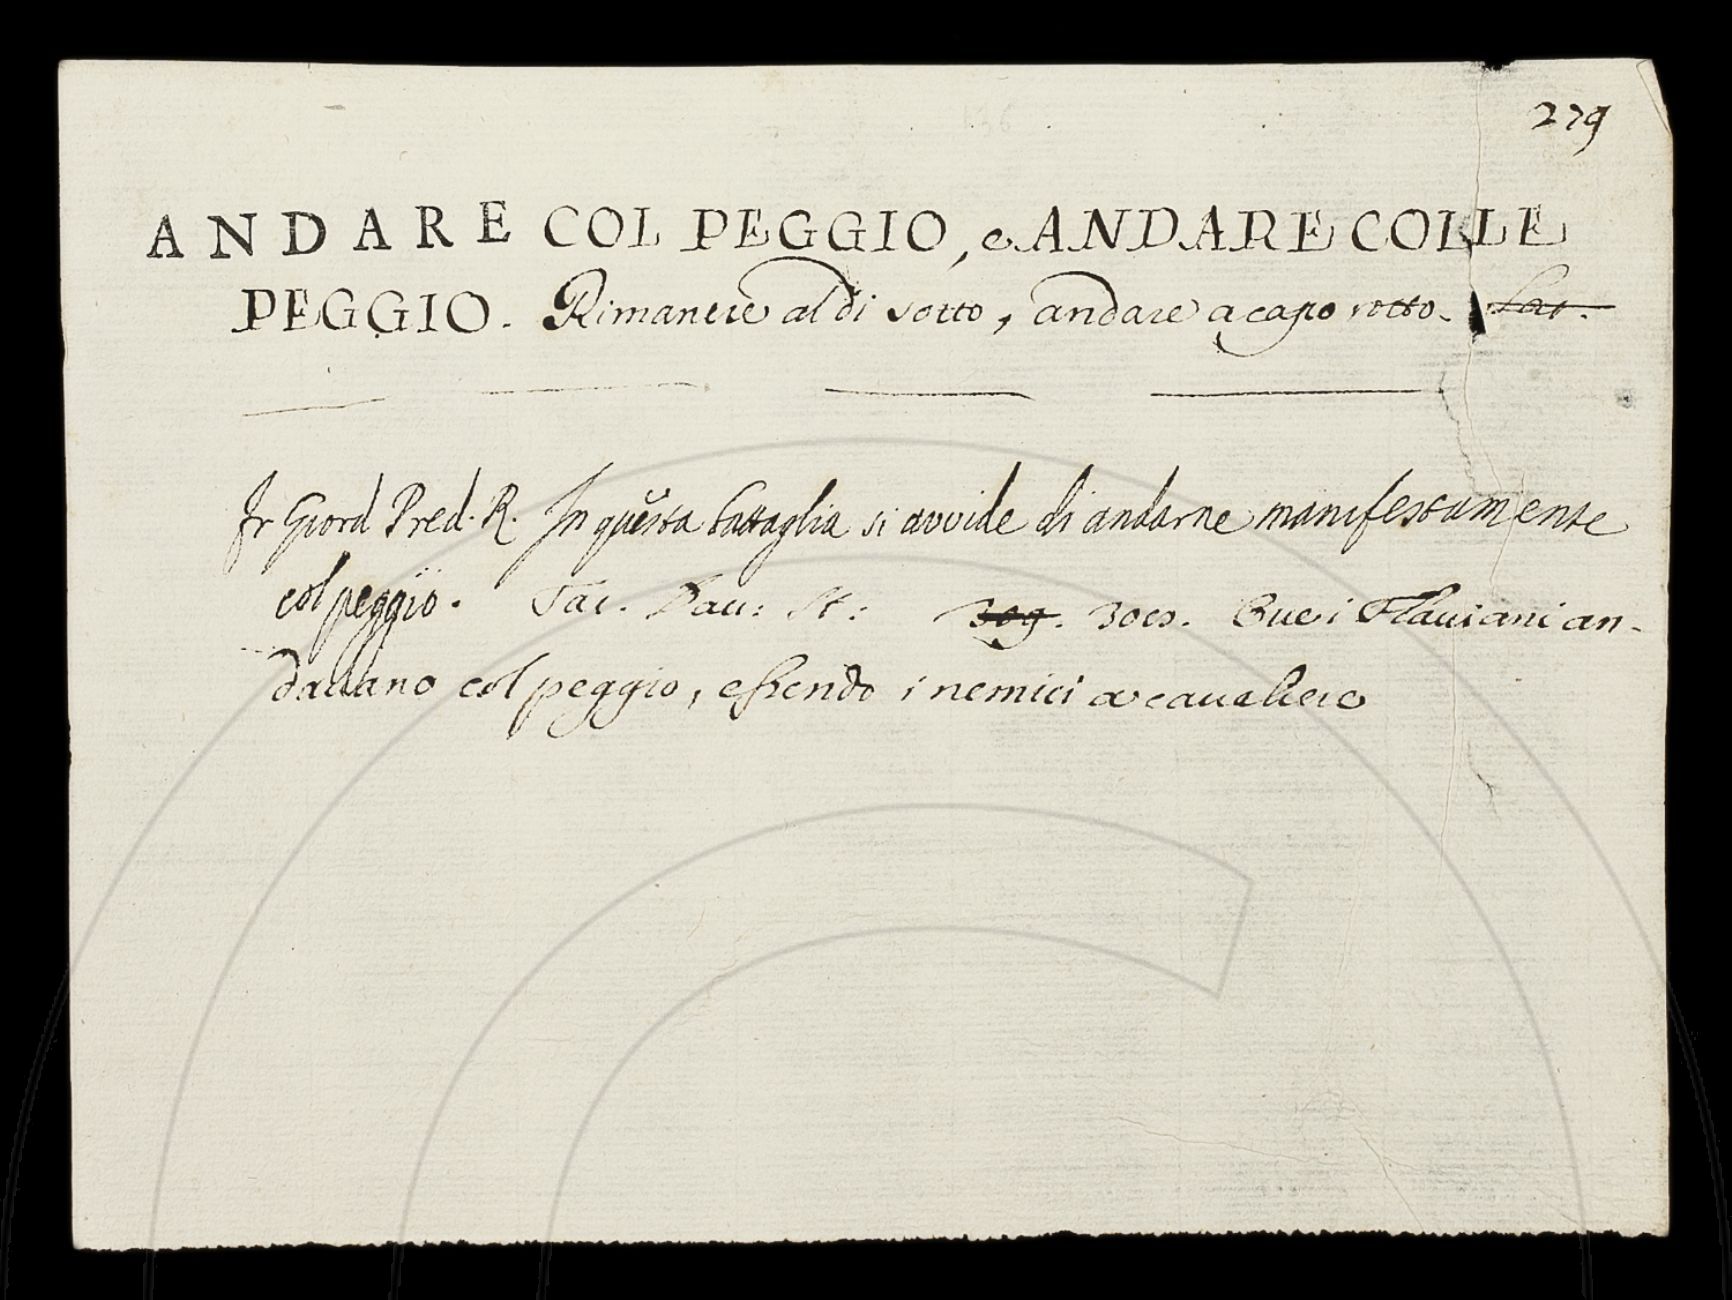 279
ANDARE COL PEGGIO, e ANDARE COLLE
PEGGIO. Rimanere al di sotto, andare a capo rotto. Lat.
Fr Giord Pred. R. In questa battaglia si avvide di andarne manifestamente
col peggio. Tac. Dau: St: 309. Quei Flauiani an-
dauano col peggio, essendo i nemici a caualiere